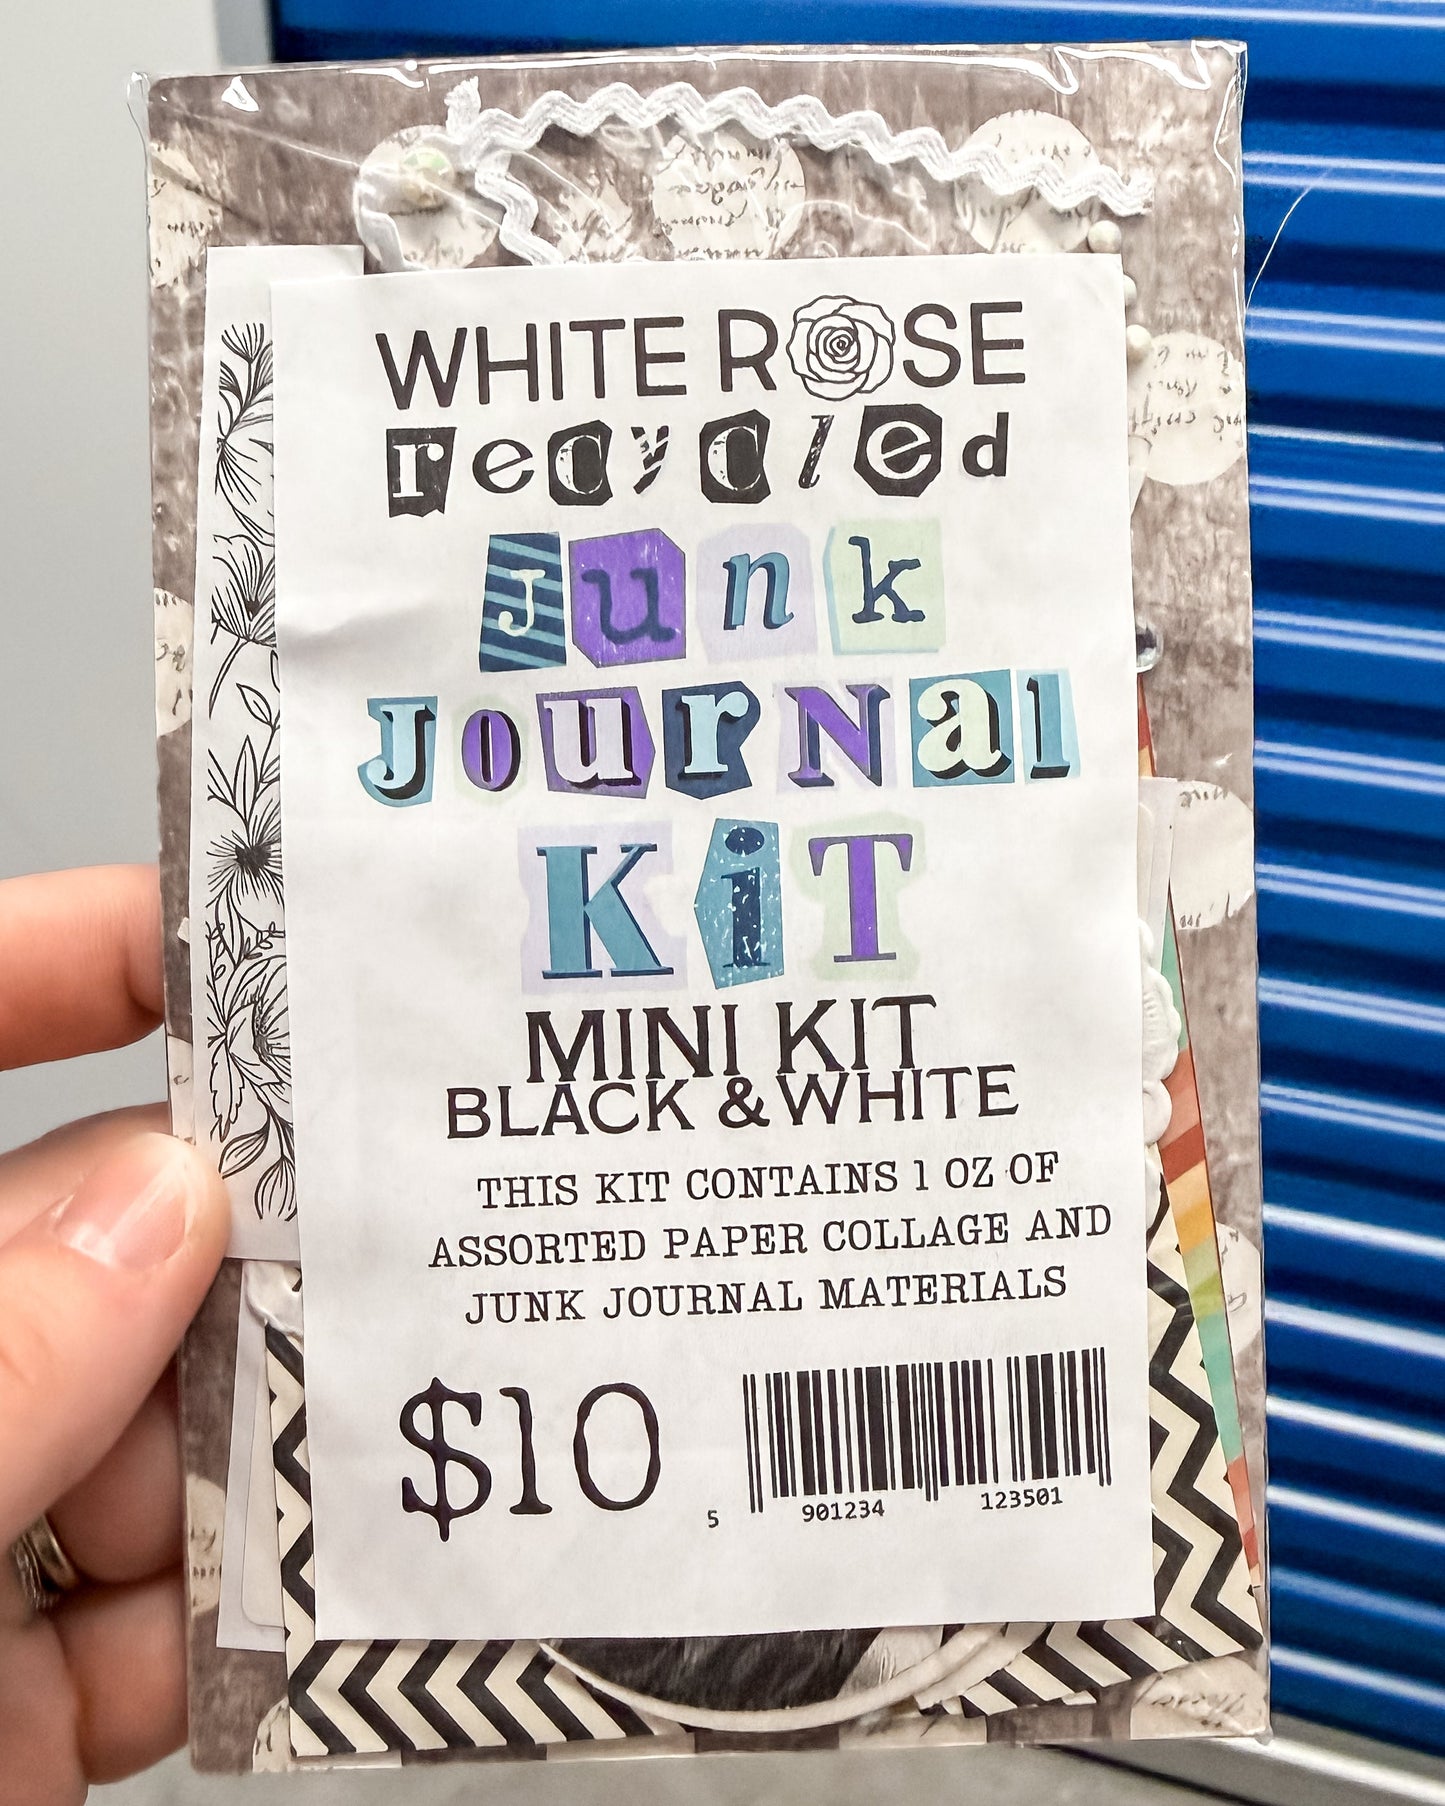 WHITE ROSE
recycled
junk
JOURNAL
KiT
MINI KIT
BLACK & WHITE
THIS KIT CONTAINS 1 OZ OF
ASSORTED PAPER COLLAGE AND
JUNK JOURNAL MATERIALS
$10
5 901234 123501